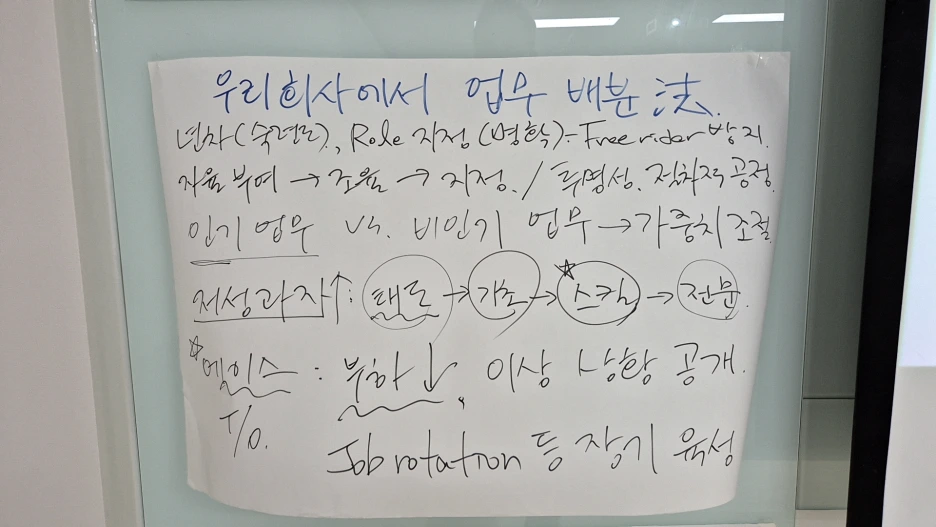 우리회사에서 업무 배분 法.
년차(숙련도), Role 지정(명확)- Free rider 방지.
자율부여 → 조율 → 지정. / 투명성. 절차적 공정.
인기 업무 vs. 비인기 업무 → 가중치 조절.
저성과자↑: 태도 → 기초 → ☆스킬 → 전문.
☆에이스 : 부하↓, 이상 상황 공개.
T/O.
Job rotation 등 장기 육성